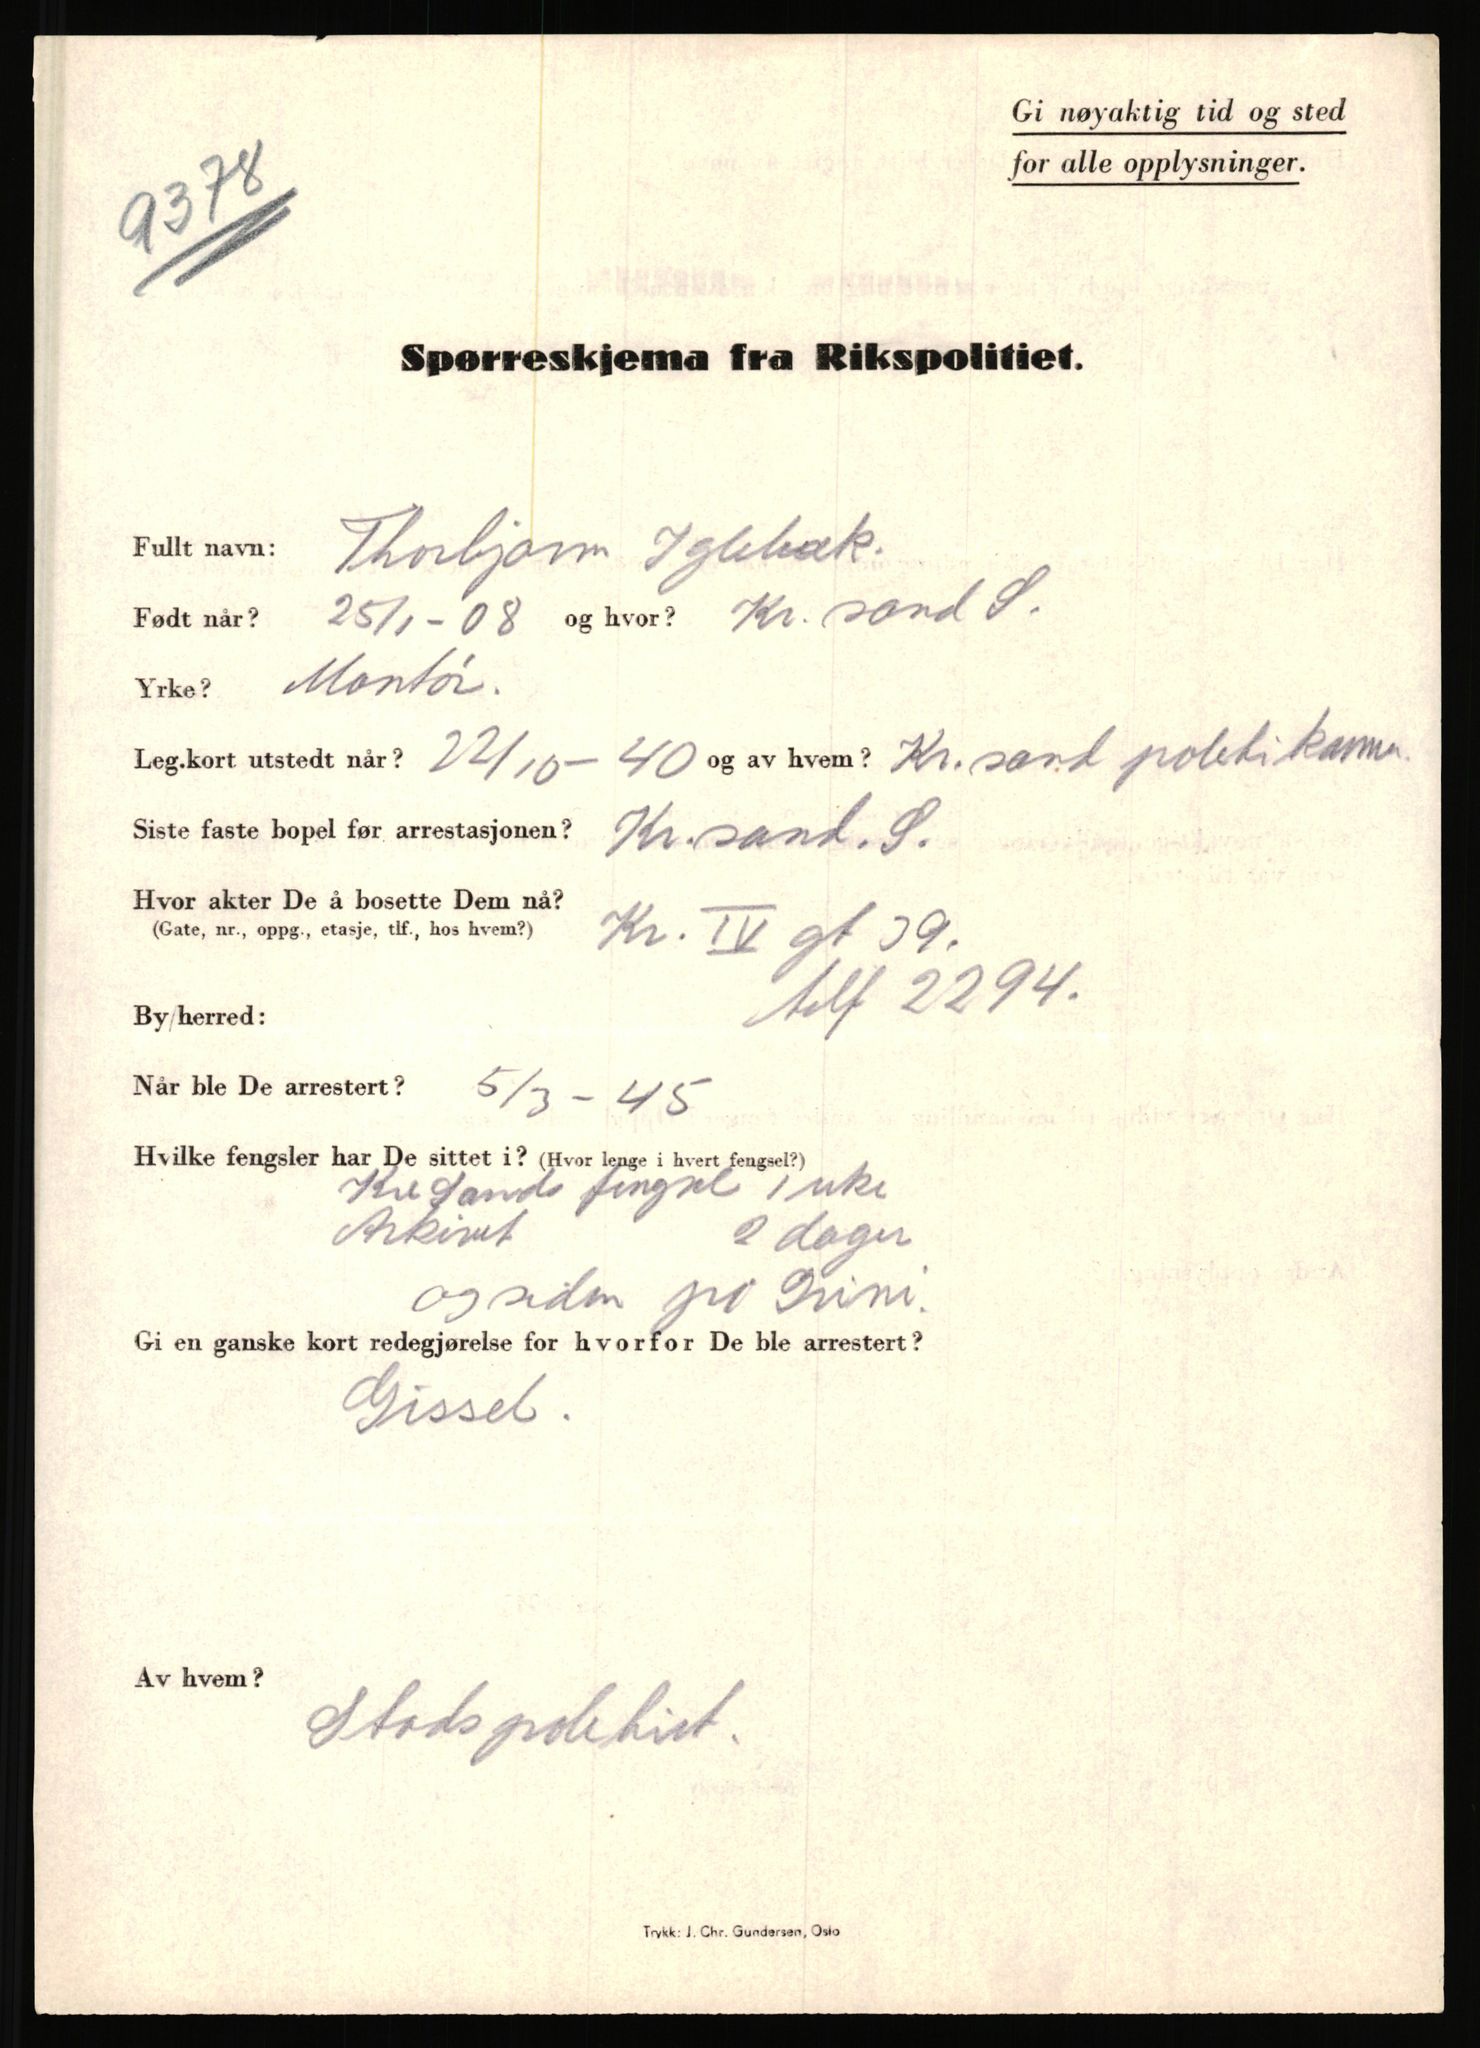 Gi nøyaktig tid og sted
for alle opplysninger.
9378
Spørreskjema fra Rikspolitiet.
Fullt navn: Thorbjørn Iglebæk.
Født når? 25/1-08 og hvor? Kr. sand S.
Yrke? Montør.
Leg.kort utstedt når? 22/10-40 og av hvem? Kr. sand politikammer.
Siste faste bopel før arrestasjonen? Kr. sand. S.
Hvor akter De å bosette Dem nå? Kr. IV gt 39.
(Gate, nr., oppg., etasje, tlf., hos hvem?)
telf 2294.
By/herred:
Når ble De arrestert? 5/3-45
Hvilke fengsler har De sittet i? (Hvor lenge i hvert fengsel?)
Kr Sands fengsel 1 uke
Arkivet 2 dager
og siden på Grini.
Gi en ganske kort redegjørelse for hvorfor De ble arrestert?
Gissel.
Av hvem?
Stadspolitiet.
Trykk: J. Chr. Gundersen, Oslo